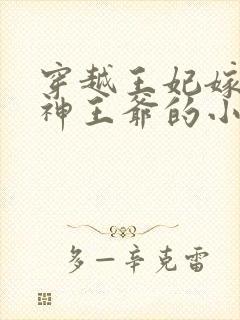 穿越王妃嫁
神王爷的小
多一辛克雷